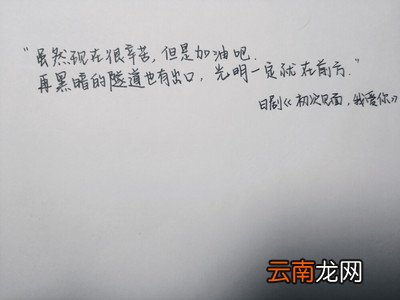 “虽然现在很辛苦,但是加油吧.
再黑暗的隧道也有出口,光明一定就在前方.”
日剧《初次见面,我爱你》
云南龙网